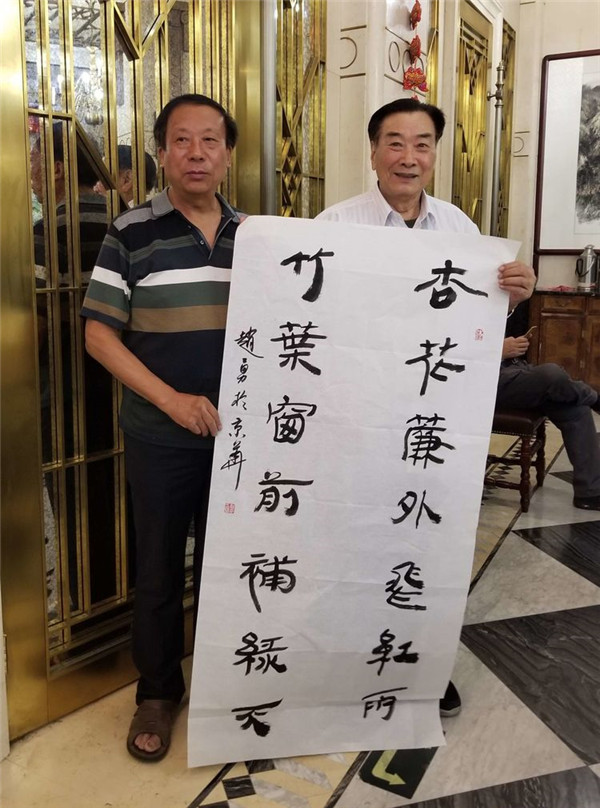 杏花簾外飛紅雨
竹葉窗前補綠天
趙勇於京華